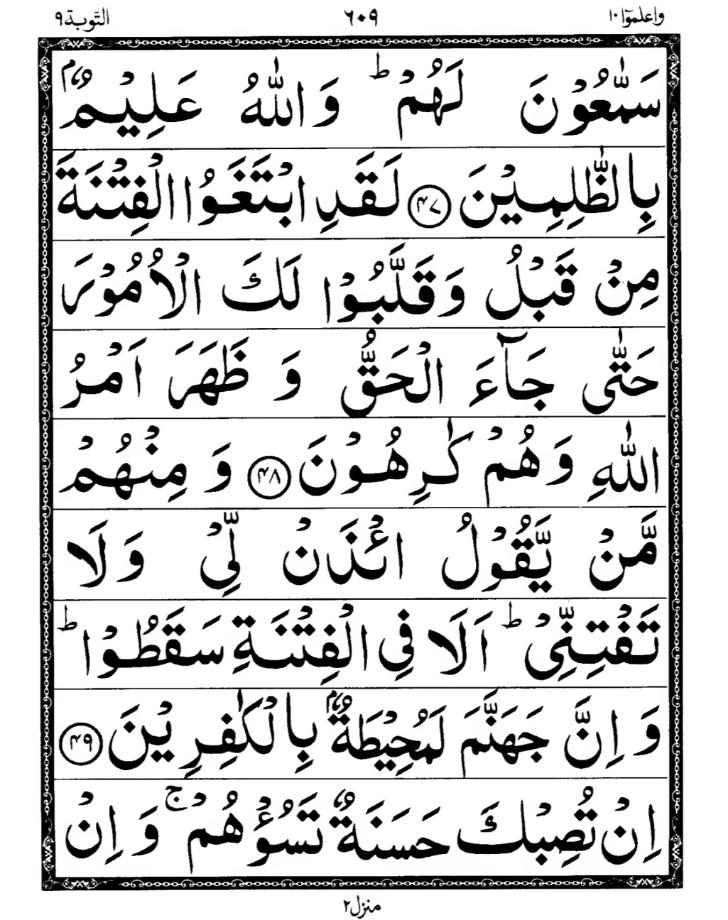 واعلموا ١٠ ٦٠٩ التوبة ٩
سَمّٰعُوْنَ لَهُمْ ؕ وَاللّٰهُ عَلِيْمٌۢ
بِالظّٰلِمِيْنَ ﴿۴۷﴾ لَقَدِ ابْتَغَوُا الْفِتْنَةَ
مِنْ قَبْلُ وَقَلَّبُوْا لَكَ الْاُمُوْرَ
حَتّٰى جَآءَ الْحَقُّ وَ ظَهَرَ اَمْرُ
اللّٰهِ وَهُمْ كٰرِهُوْنَ ﴿۴۸﴾ وَ مِنْهُمْ
مَّنْ يَّقُوْلُ ائْذَنْ لِّىْ وَلَا
تَفْتِنِّىْ ؕ اَلَا فِى الْفِتْنَةِ سَقَطُوْا ؕ
وَ اِنَّ جَهَنَّمَ لَمُحِيْطَةٌۢ بِالْكٰفِرِيْنَ ﴿۴۹﴾
اِنْ تُصِبْكَ حَسَنَةٌ تَسُؤْهُمْ ۚ وَ اِنْ
منزل ٢